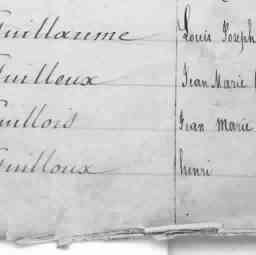 Guillaume Louis Joseph
Guilleux Jean Marie
Guillois Jean Marie
Guilloux henri